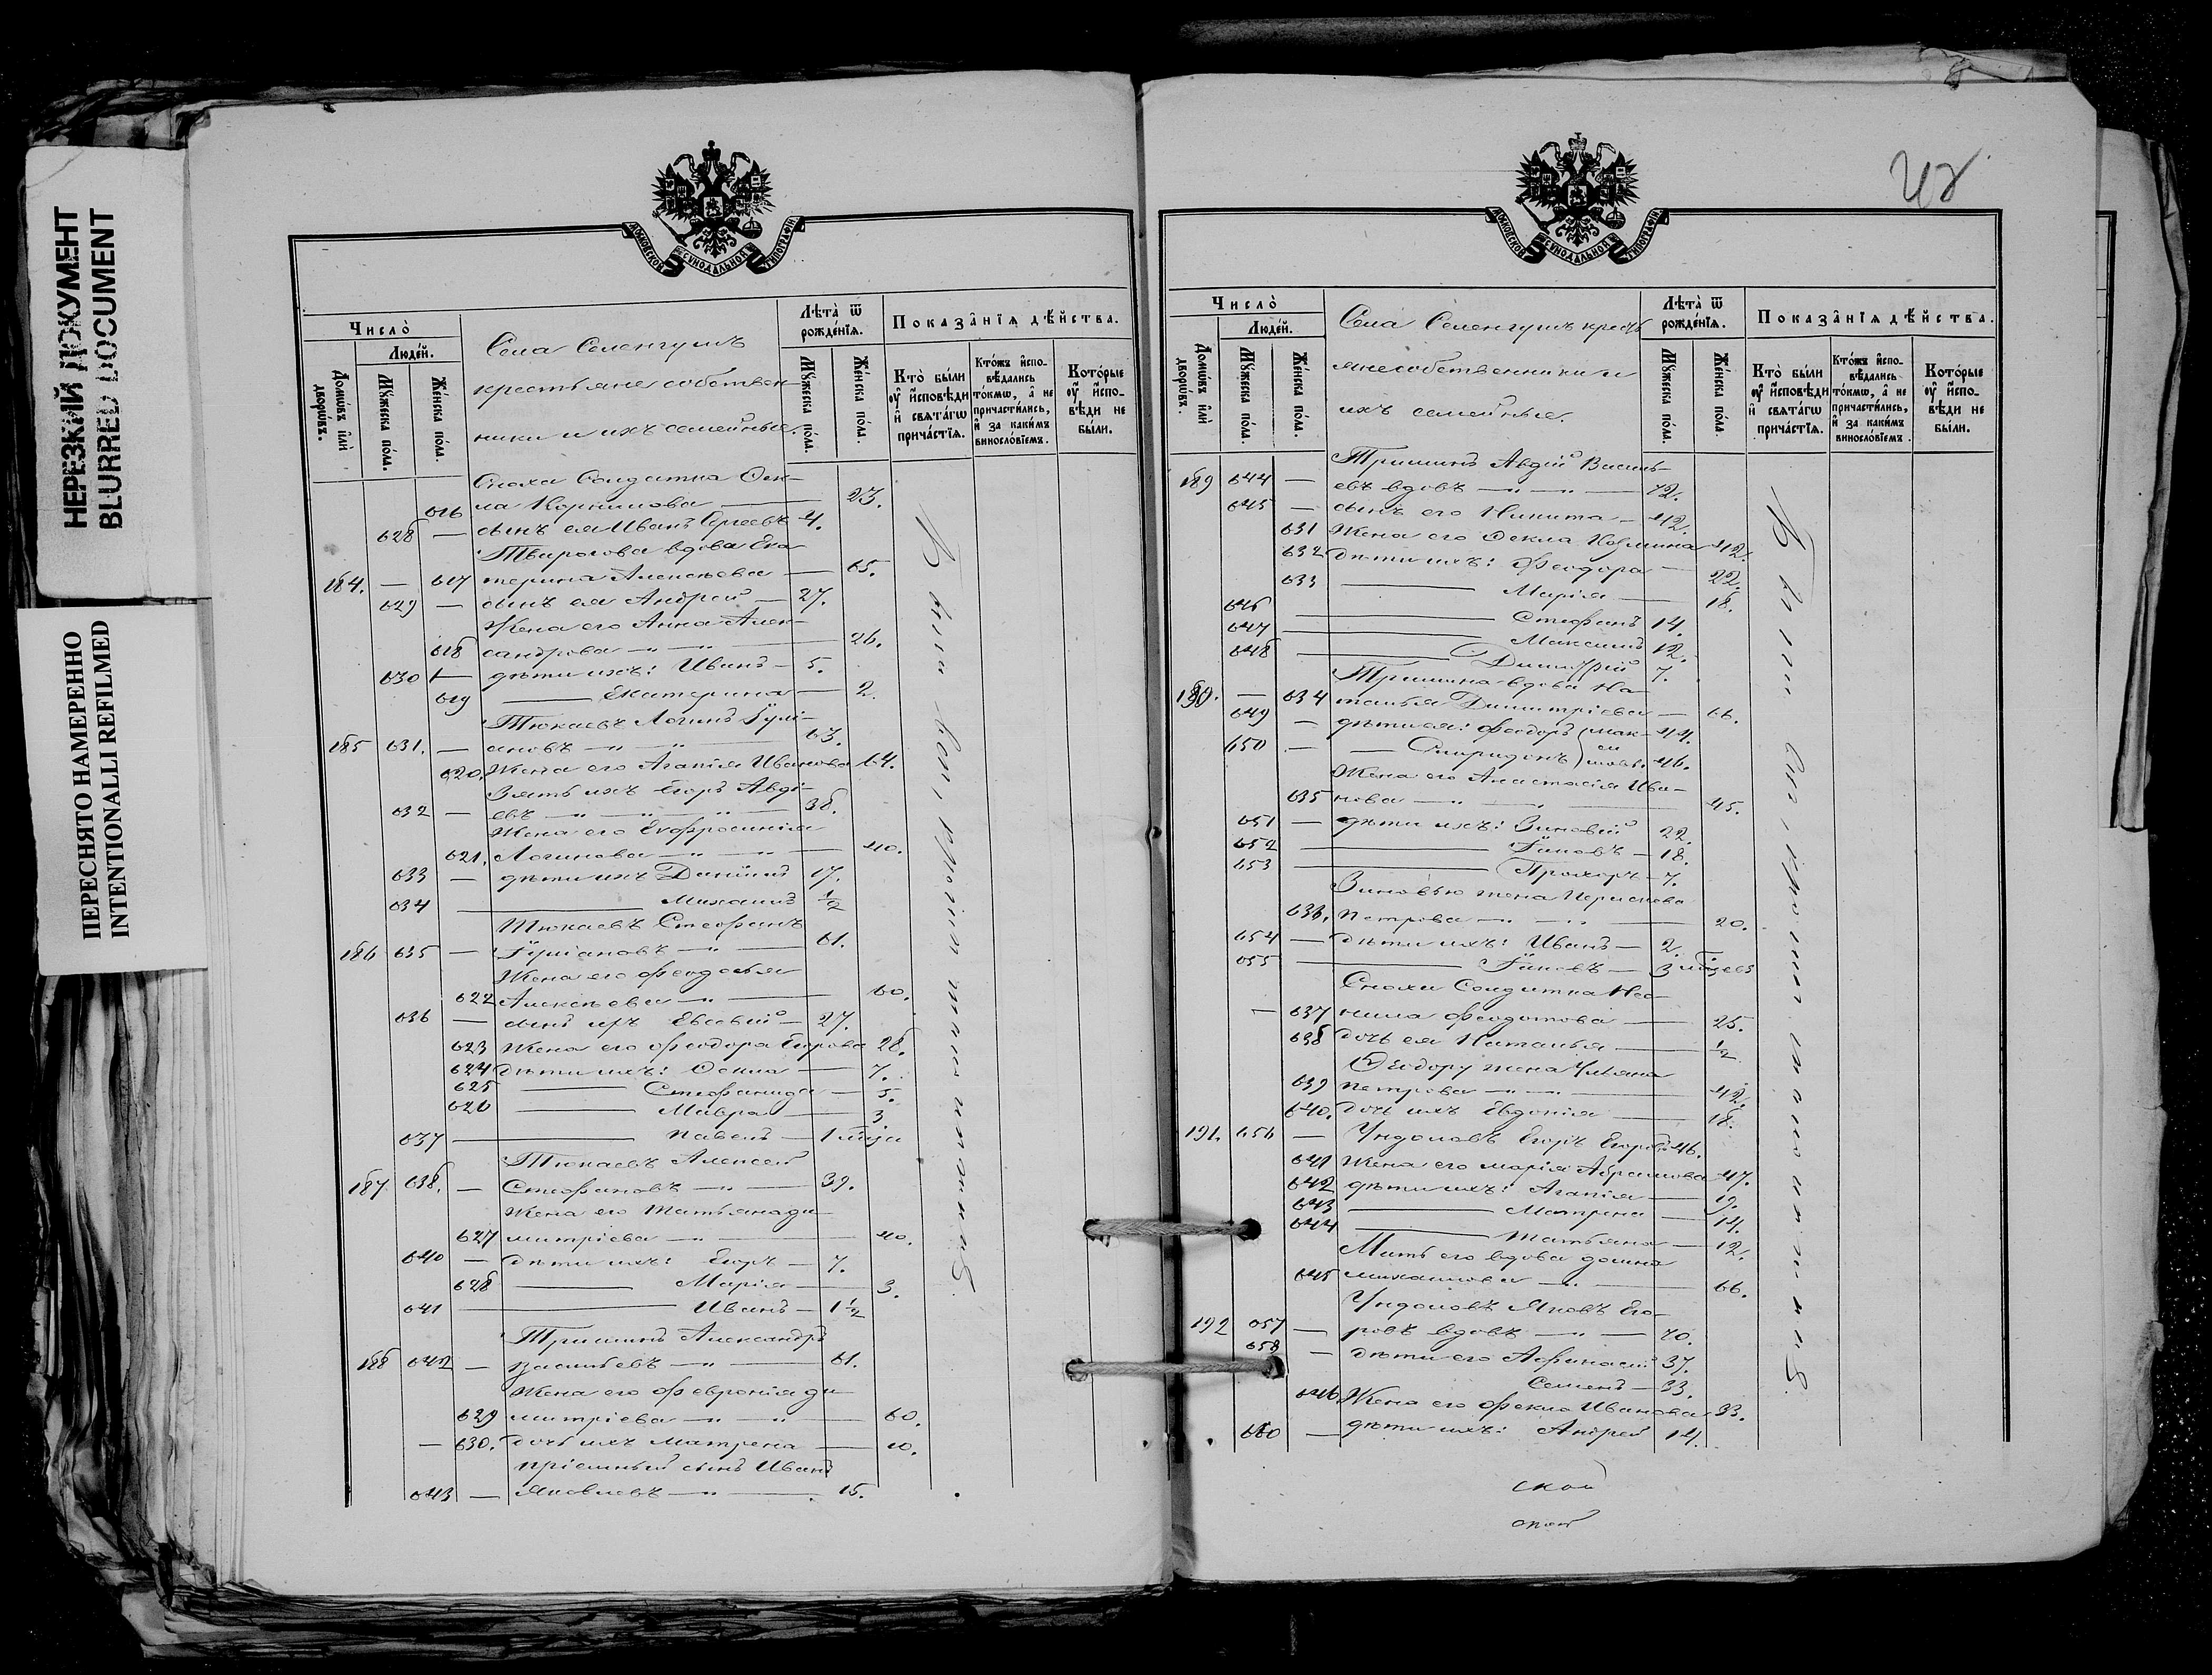 НЕРЕЗКИЙ ДОКУМЕНТ
BLURRED DOCUMENT
ПЕРЕСНЯТО НАМЕРЕННО
INTENTIONALLI REFILMED
МОСКОВСКОЙ СУНОДАЛЬНОЙ ТИПОГРАФІИ
Число̀
Людей.
Домѡвъ или дворѡвъ.
Мꙋжеска пола.
Женска пола.
Села Селенгушъ
крестьяне собствен-
ники и ихъ семейные.
Лѣта ѿ рожденїѧ.
Мꙋжеска пола.
Женска пола.
Показанїѧ дѣйства.
Кто были ᲂу исповѣди и свѧтагѡ причастїѧ.
Ктожъ исповѣдались токмѡ, а не причастились, и за какимъ винословїемъ.
Которые ᲂу исповѣди не были.
Сноха Солдатка Фек-
616 ла Корнилова — 23.
628 — сынъ ея Иванъ Сергеевъ 4.
Творогова вдова Ека-
184. — 617 терина Алексѣева — 65.
629 — сынъ ея Андрей — 27.
Жена его Анна Алек-
618 сандрова — „ — „ — 26.
630 — дѣти ихъ: Иванъ — 5.
619 — Екатерина — 2.
Тюкаевъ Логинъ Іулі-
185 631. — ановъ — „ — „ — 63.
620. Жена его Агапія Иванова 64.
Зять ихъ Егоръ Авді-
632 — евъ — „ — „ — „ — 38.
Жена его Евфросинія
621. Логинова — „ — „ — 40.
633 — дѣти ихъ Даніилъ 17.
634 — Михаилъ ½
Тюкаевъ Стефанъ
186 635 — Іуліановъ — „ — 61.
Жена его Феодосья
622 Алексѣева — „ — 60.
636 — сынъ ихъ Евсевій — 27.
623 Жена его Феодора Егорова 28.
624 Дѣти ихъ: Фекла — 7.
625 — Стефанида — 5.
626 — Мавра — 3
637 — Павелъ — 1 мѣсяца
Тюкаевъ Алексей
187 638. — Стефановъ — „ — 39.
Жена его Татьяна Ди-
627 митріева — „ — 40.
640 — Дѣти ихъ: Егоръ — 7.
628 — Марія — 3.
641 — Иванъ — 1½
Тришинъ Александръ
188 642 — Васильевъ — „ — 61.
Жена его Февронія Ди-
629 митріева — „ — „ — 60.
— 630. Дочь ихъ Матрена — 10.
Пріемный сынъ Иванъ
643 — Яковлевъ — „ — 15.
МОСКОВСКОЙ СУНОДАЛЬНОЙ ТИПОГРАФІИ
Число̀
Людей.
Домѡвъ или дворѡвъ.
Мꙋжеска пола.
Женска пола.
Села Селенгушъ кресть
яне собственники и
ихъ семейные.
Лѣта ѿ рожденїѧ.
Мꙋжеска пола.
Женска пола.
Показанїѧ дѣйства.
Кто были ᲂу исповѣди и свѧтагѡ причастїѧ.
Ктожъ исповѣдались токмѡ, а не причастились, и за какимъ винословїемъ.
Которые ᲂу исповѣди не были.
Тришинъ Авдій Василь-
189 644 — евъ вдовъ — „ — „ — 72.
645 — сынъ его Никита — 42.
631 Жена его Фекла Козмина 42.
632 Дѣти ихъ: Феодора — 22.
633 — Марія — 18.
646 — Стефанъ 14.
647 — Максимъ 12.
648 — Димитрій 7.
Тришина вдова На-
190. — 634 талья Димитріева — 66.
649 — дѣти ея: Феодоръ 44.
650 — Спиридонъ 46.
Жена его Анастасія Ива-
635 нова — „ — „ — 45.
651 — дѣти ихъ: Зиновій 22.
652 — Іаковъ — 18.
653 — Прохоръ — 7.
Зиновью жена
636. Петрова — „ — „ — 20.
654 — Дѣти ихъ: Иванъ — 2.
655 — Іаковъ — 3
Сноха Солдатка Нео-
— 637 нила Феодотова — 25.
638 Дочь ея Наталья — ½
Феодору жена Ульяна
639 Петрова — „ — „ — 42.
640. Дочь ихъ Евдокія — 18.
191. 656 — Ундоловъ Егоръ Егоровъ 46.
641 Жена его Марія Абрамова 47.
642 дѣти ихъ: Агапія — 19.
643 — Матрена — 14.
644 — Татьяна — 12.
Мать его вдова Домна
645 Михаилова — „ — 66.
Ундоловъ Яковъ Его-
192 657 — ровъ вдовъ — „ — 70.
658 — Дѣти его Афанасій 37.
Семенъ — 33.
646 Жена его Фекла Иванова 33.
660 — дѣти ихъ: Андрей 14.
ской